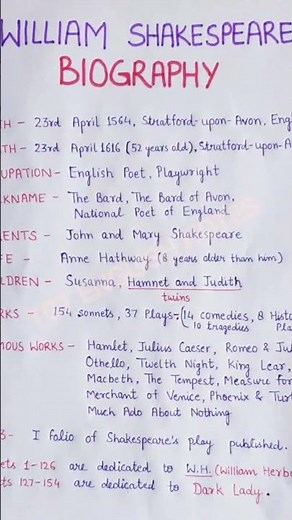 WILLIAM SHAKESPEARE
BIOGRAPHY
TH - 23rd April 1564, Stratford-upon-Avon, Eng
TH - 23rd April 1616 (52 years old), Stratford-upon-A
UPATION - English Poet, Playwright
KNAME - The Bard, The Bard of Avon,
National Poet of England
ENTS - John and Mary Shakespeare
FE - Anne Hathway (8 years older than him)
LDREN - Susanna, Hamnet and Judith
twins
RKS - 154 sonnets, 37 Plays - (14 comedies, 8 Histo
10 tragedies Pla
MOUS WORKS - Hamlet, Julius Caeser, Romeo & Jul
Othello, Twelth Night, King Lear,
Macbeth, The Tempest, Measure for
Merchant of Venice, Phoenix & Turt
Much Ado About Nothing
3- I folio of Shakespeare's play published.
ets 1-126 are dedicated to W.H. (William Herbe
ts 127-154 are dedicated to Dark Lady.